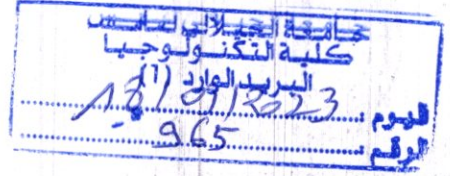 جامعة الجيلالي ليابس
كلية التكنولوجيا
البريد الوارد (1)
اليوم : 18/01/2023
الرقم : 965